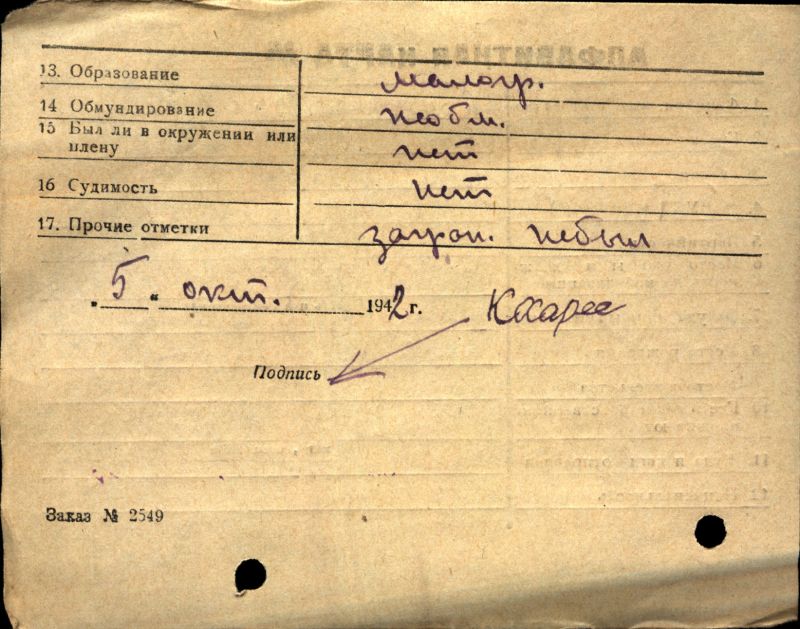 13. Образование малогр.
14 Обмундирование необм.
15 Был ли в окружении или
плену нет
16 Судимость нет
17. Прочие отметки загран. не был
„ 5 “ окт. 1942 г.
Подпись
Заказ № 2549